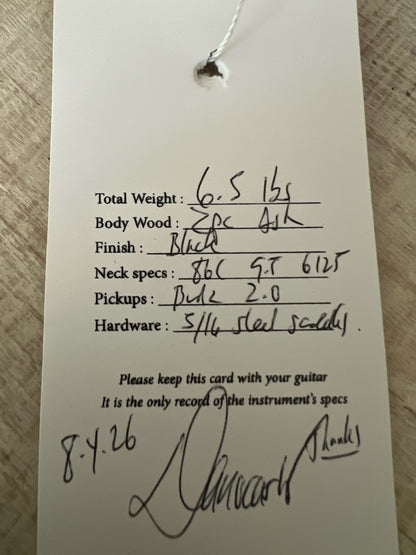 Total Weight : 6.5 lbs
Body Wood : 2pc Ash
Finish : Black
Neck specs : 86C 9.5 6125
Pickups : 2.0
Hardware : 5/16 steel saddles.
Please keep this card with your guitar
It is the only record of the instrument's specs
8.4.26
Danocaster Thanks